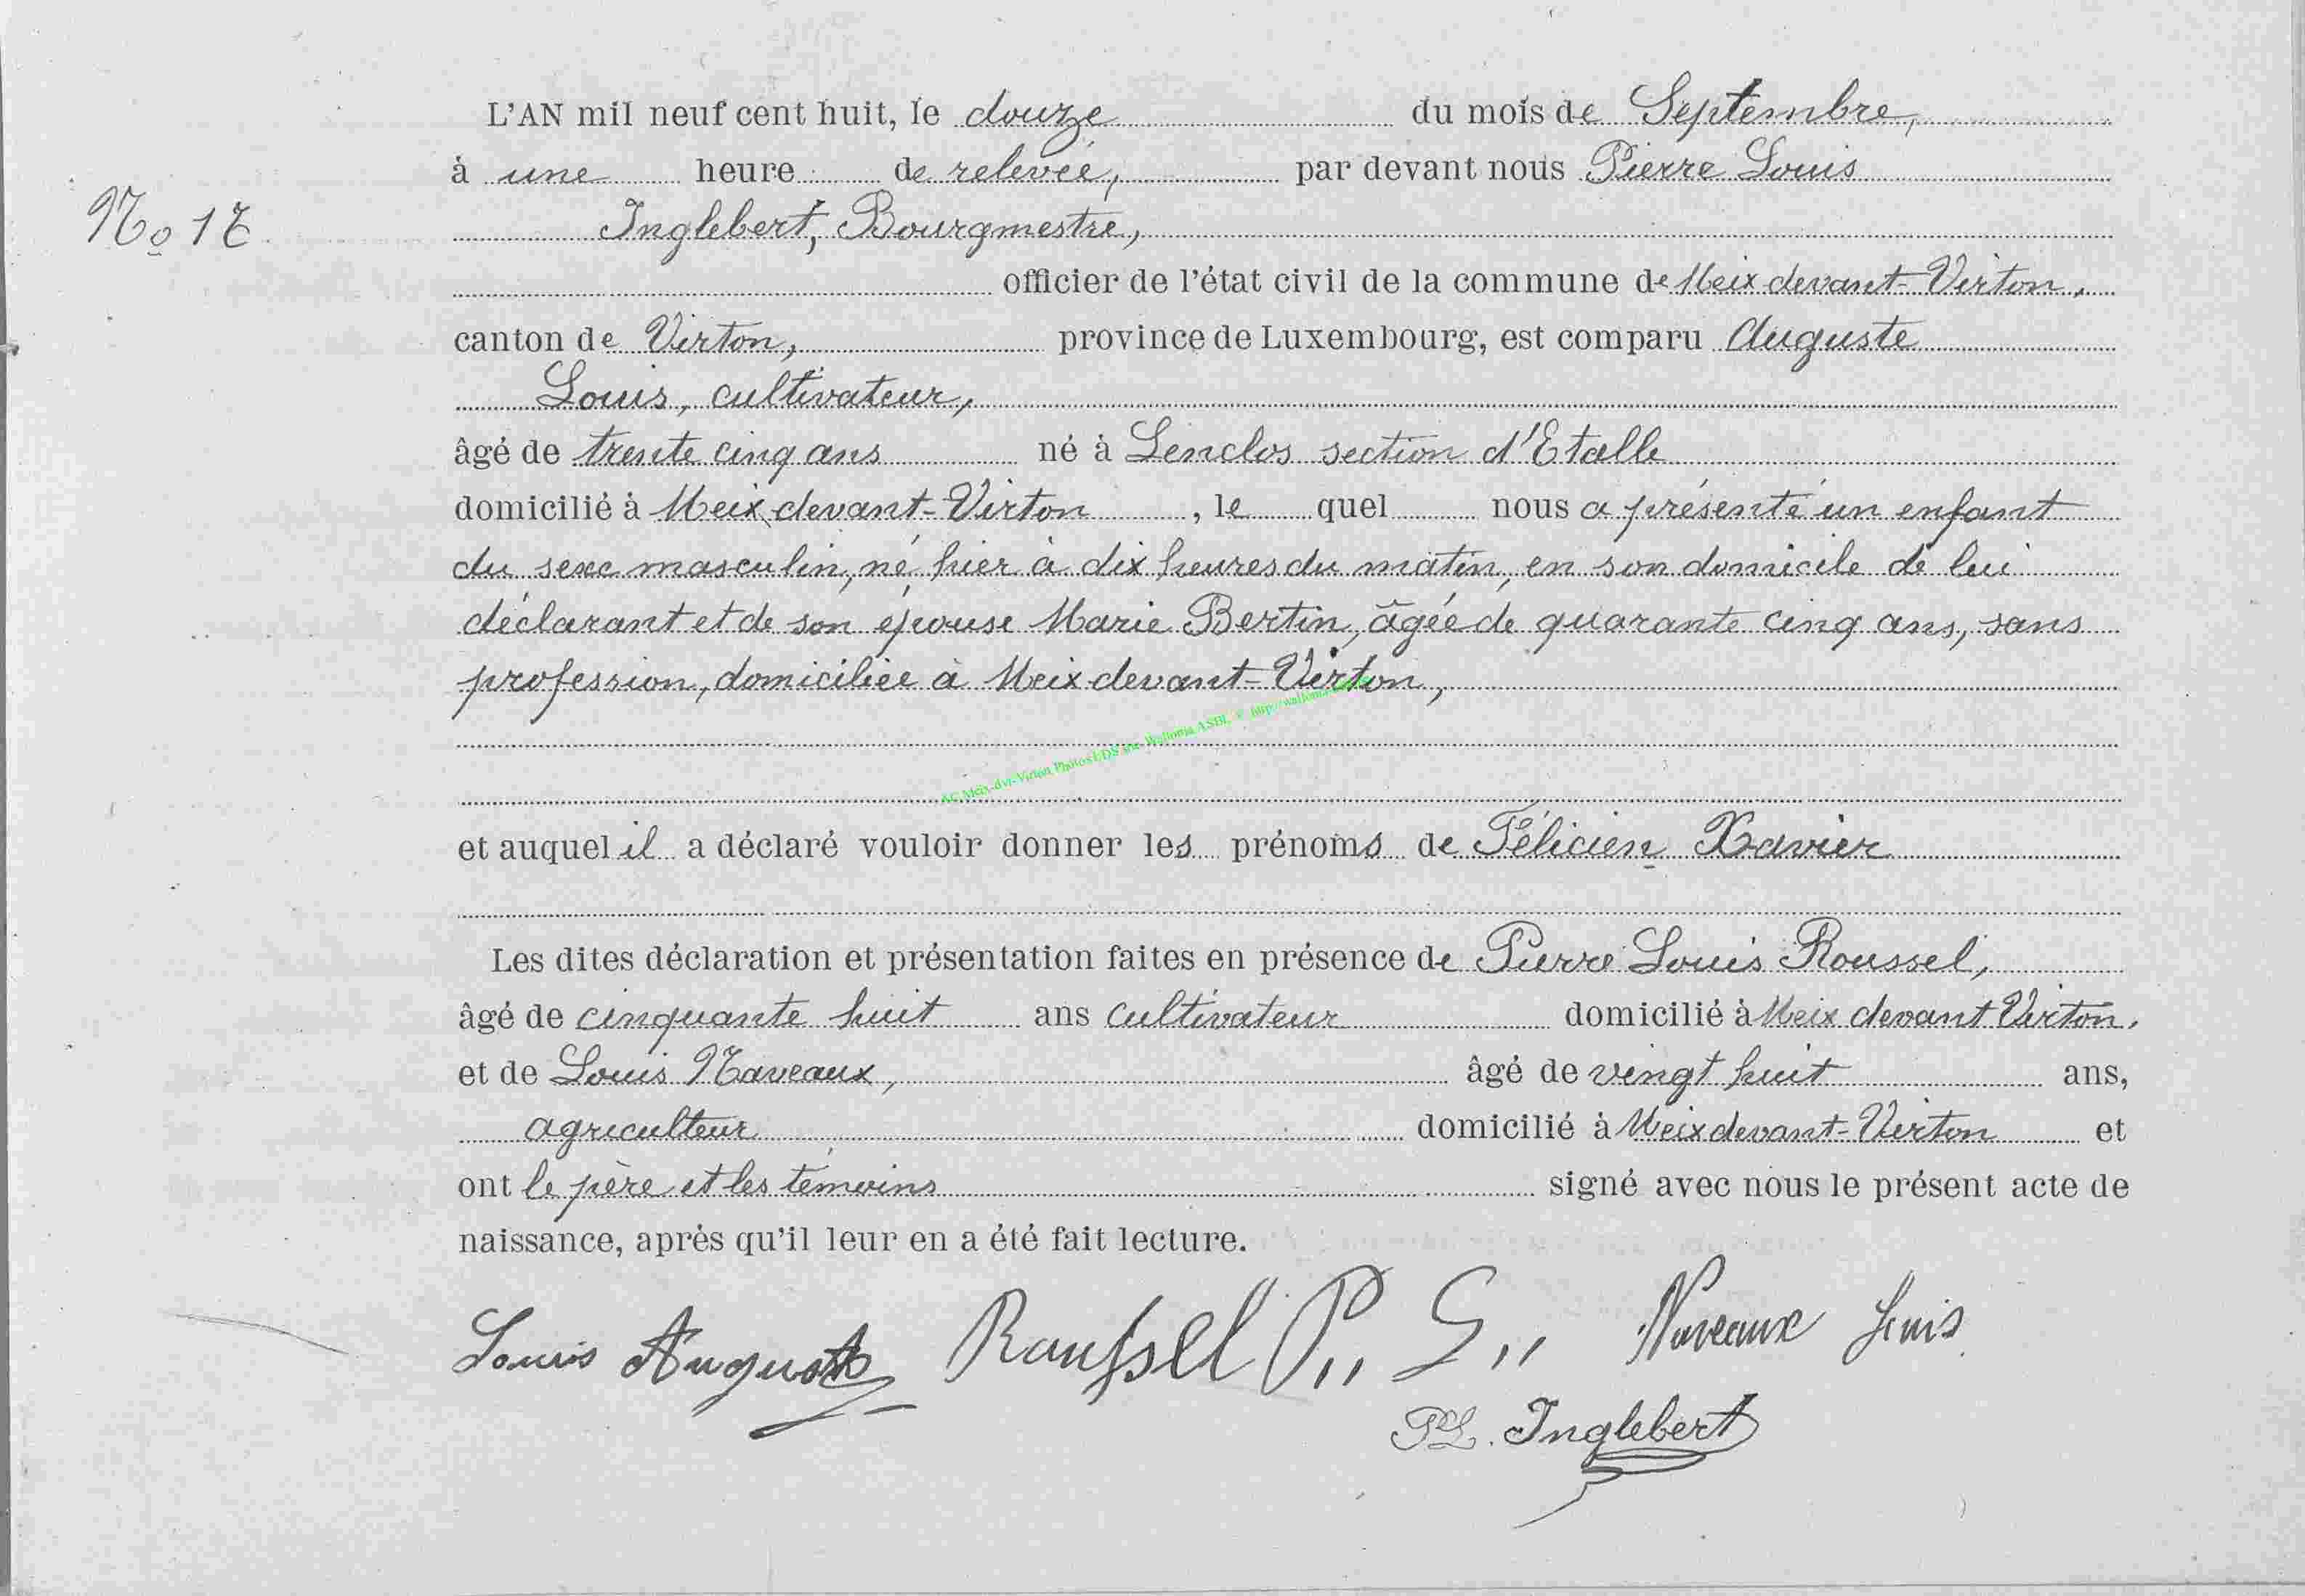 L'AN mil neuf cent huit, le douze du mois de Septembre,
à une heure de relevée, par devant nous Pierre Louis
No 17
Inglebert, Bourgmestre,
officier de l'état civil de la commune de Meix devant-Virton,
canton de Virton, province de Luxembourg, est comparu Auguste
Louis, cultivateur,
âgé de trente cinq ans né à Lenclos section d'Etalle
domicilié à Meix devant-Virton, le quel nous a présenté un enfant
du sexe masculin, né hier à dix heures du matin, en son domicile de lui
déclarant et de son épouse Marie Bertin, âgée de quarante cinq ans, sans
profession, domiciliée à Meix devant-Virton,
AC Meix-dvt-Virton Photos LDS Wallonia ASBL
et auquel il a déclaré vouloir donner les prénoms de Félicien Xavier
Les dites déclaration et présentation faites en présence de Pierre Louis Roussel,
âgé de cinquante huit ans cultivateur domicilié à Meix devant Virton,
et de Louis Naveaux, âgé de vingt huit ans,
agriculteur domicilié à Meix devant-Virton et
ont le père et les témoins signé avec nous le présent acte de
naissance, après qu'il leur en a été fait lecture.
Louis Auguste Roussel P,, L,, Naveaux Louis
PL. Inglebert